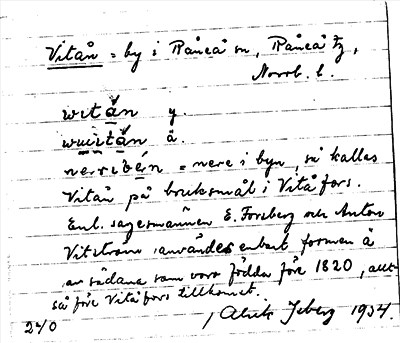 Vitån = by i Råneå sn, Råneå tg,
Norrb. l.
witå̄n y.
wuitå̄n ä.
nerribén = nere i byn, så kallas
Vitån på bruksmål i Vitåfors.
Enl. sagesmännen E. Forsberg och Anton
Vitström användes enbart formen ä
av sådana som voro födda före 1820, allt-
så före Vitåfors tillkomst.
240
1934